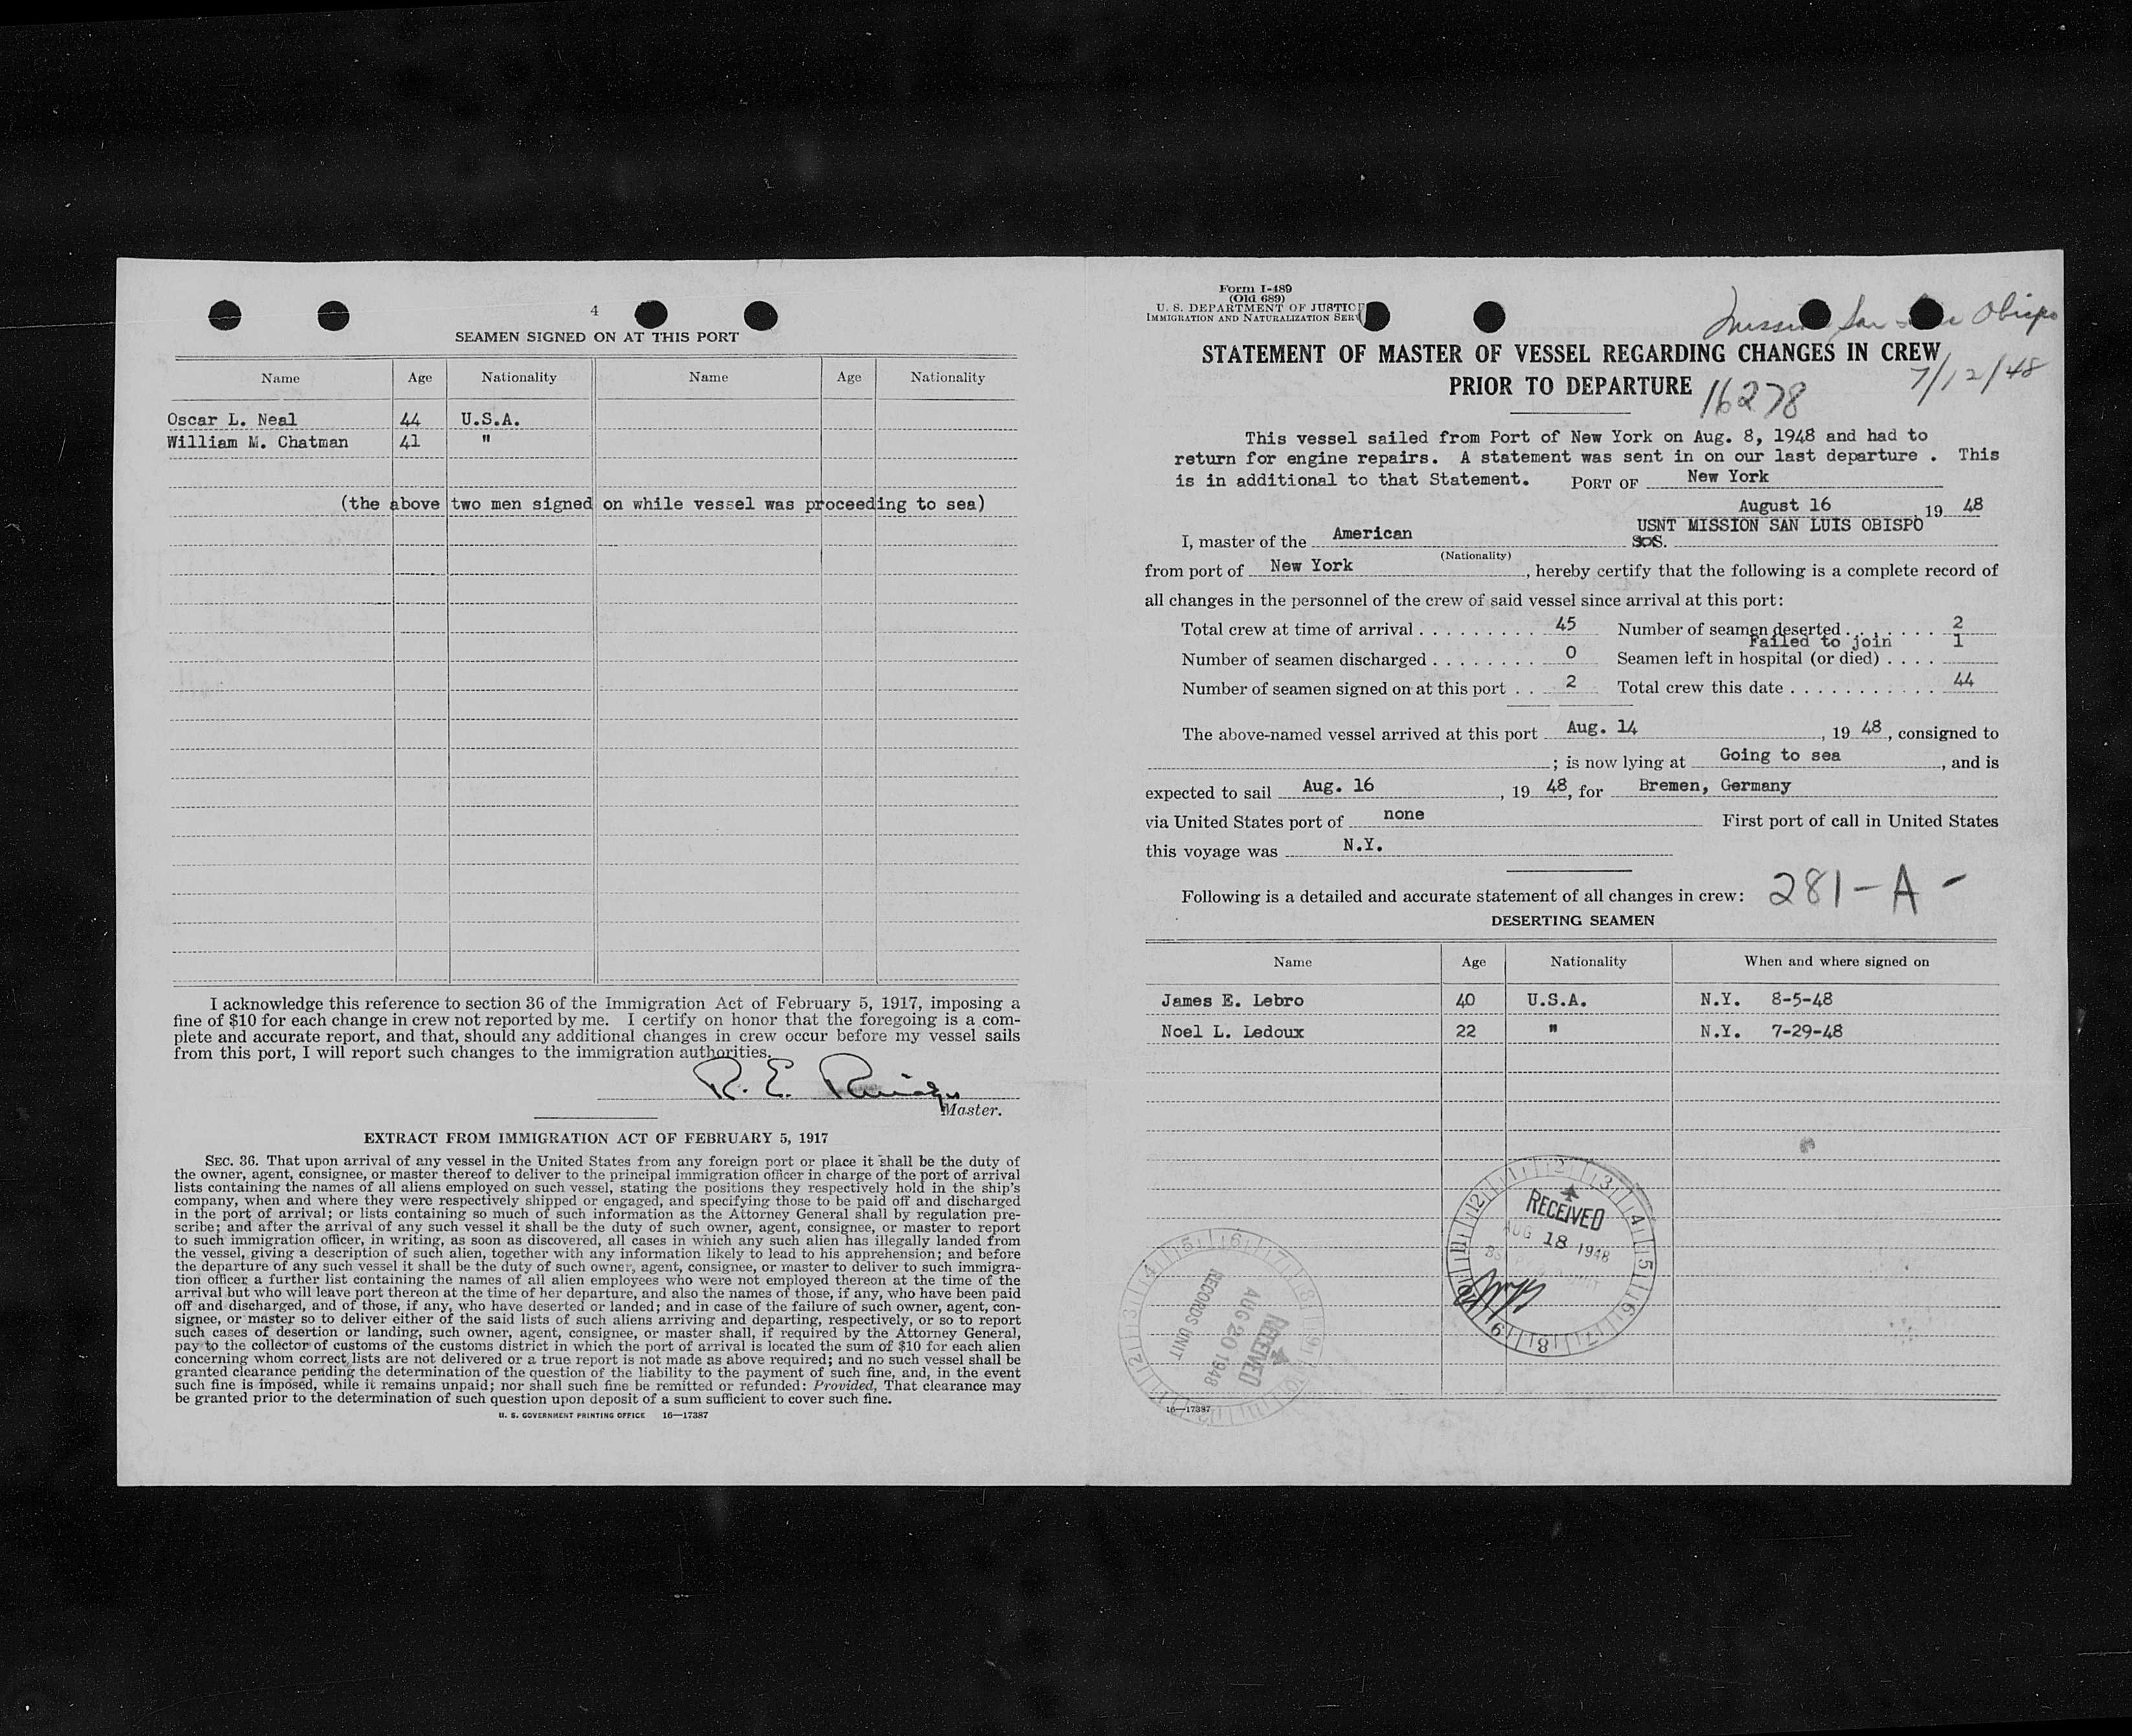 4
SEAMEN SIGNED ON AT THIS PORT
Name Age Nationality Name Age Nationality
Oscar L. Neal 44 U.S.A.
William M. Chatman 41 "
(the above two men signed on while vessel was proceeding to sea)
I acknowledge this reference to section 36 of the Immigration Act of February 5, 1917, imposing a
fine of $10 for each change in crew not reported by me. I certify on honor that the foregoing is a com-
plete and accurate report, and that, should any additional changes in crew occur before my vessel sails
from this port, I will report such changes to the immigration authorities.
R. E.
Master.
EXTRACT FROM IMMIGRATION ACT OF FEBRUARY 5, 1917
SEC. 36. That upon arrival of any vessel in the United States from any foreign port or place it shall be the duty of
the owner, agent, consignee, or master thereof to deliver to the principal immigration officer in charge of the port of arrival
lists containing the names of all aliens employed on such vessel, stating the positions they respectively hold in the ship's
company, when and where they were respectively shipped or engaged, and specifying those to be paid off and discharged
in the port of arrival; or lists containing so much of such information as the Attorney General shall by regulation pre-
scribe; and after the arrival of any such vessel it shall be the duty of such owner, agent, consignee, or master to report
to such immigration officer, in writing, as soon as discovered, all cases in which any such alien has illegally landed from
the vessel, giving a description of such alien, together with any information likely to lead to his apprehension; and before
the departure of any such vessel it shall be the duty of such owner, agent, consignee, or master to deliver to such immigra-
tion officer a further list containing the names of all alien employees who were not employed thereon at the time of the
arrival but who will leave port thereon at the time of her departure, and also the names of those, if any, who have been paid
off and discharged, and of those, if any, who have deserted or landed; and in case of the failure of such owner, agent, con-
signee, or master so to deliver either of the said lists of such aliens arriving and departing, respectively, or so to report
such cases of desertion or landing, such owner, agent, consignee, or master shall, if required by the Attorney General,
pay to the collector of customs of the customs district in which the port of arrival is located the sum of $10 for each alien
concerning whom correct lists are not delivered or a true report is not made as above required; and no such vessel shall be
granted clearance pending the determination of the question of the liability to the payment of such fine, and, in the event
such fine is imposed, while it remains unpaid; nor shall such fine be remitted or refunded: Provided, That clearance may
be granted prior to the determination of such question upon deposit of a sum sufficient to cover such fine.
U. S. GOVERNMENT PRINTING OFFICE 16—17387
Form I-489
(Old 689)
U. S. DEPARTMENT OF JUSTICE
IMMIGRATION AND NATURALIZATION SERV
Mission San Obispo
7/12/48
STATEMENT OF MASTER OF VESSEL REGARDING CHANGES IN CREW
PRIOR TO DEPARTURE 16278
This vessel sailed from Port of New York on Aug. 8, 1948 and had to
return for engine repairs. A statement was sent in on our last departure . This
is in additional to that Statement. PORT OF New York
August 16, 19 48
USNT MISSION SAN LUIS OBISPO
I, master of the American S.S.
(Nationality)
from port of New York, hereby certify that the following is a complete record of
all changes in the personnel of the crew of said vessel since arrival at this port:
Total crew at time of arrival 45 Number of seamen deserted 2
Failed to join 1
Number of seamen discharged 0 Seamen left in hospital (or died)
Number of seamen signed on at this port 2 Total crew this date 44
The above-named vessel arrived at this port Aug. 14, 19 48, consigned to
; is now lying at Going to sea, and is
expected to sail Aug. 16, 19 48, for Bremen, Germany
via United States port of none First port of call in United States
this voyage was N.Y.
Following is a detailed and accurate statement of all changes in crew: 281-A-
DESERTING SEAMEN
Name Age Nationality When and where signed on
James E. Lebro 40 U.S.A. N.Y. 8-5-48
Noel L. Ledoux 22 " N.Y. 7-29-48
RECEIVED
AUG 18 1948
RECEIVED
AUG 20 1948
RECORDS UNIT
16—17387